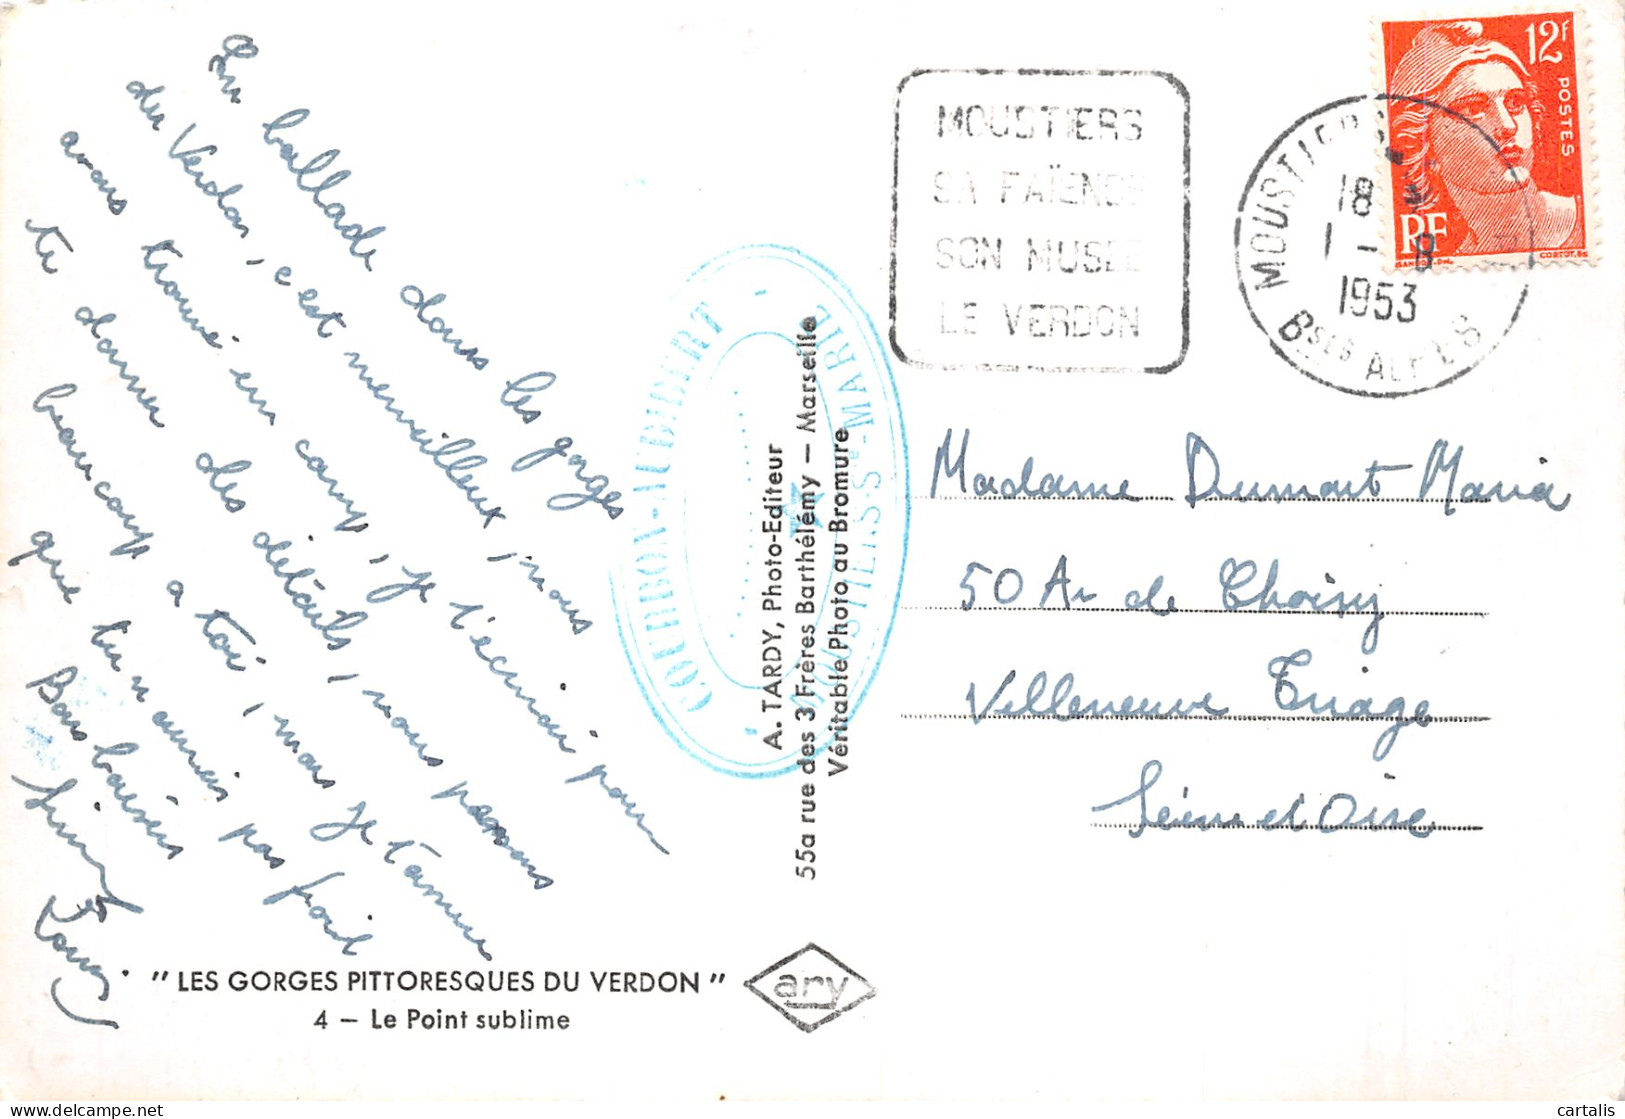 En ballade dans les gorges
du Verdon, c'est merveilleux, nous
avons trouvé un camp, je t'écrirai pour
te donner des détails, nous pensons
beaucoup a toi, mais je t'assure
que tu n'aurais pas froid
Bons baisers
"LES GORGES PITTORESQUES DU VERDON"
4 — Le Point sublime
A. TARDY, Photo-Editeur
55a rue des 3 Frères Barthélémy — Marseille
Véritable Photo au Bromure
ary
COURBON-AUBERT
MOUSTIERS Ste MARIE
MOUSTIERS
SA FAÏENCE
SON MUSEE
LE VERDON
MOUSTIERS
18
1 - 8
1953
Bses ALPES
12F
POSTES
RF
GANDON.DEL.
CORTOT.SC
Madame Dumont Maria
50 Av de Choisy
Villeneuve Triage
Seine et Oise
cartalis